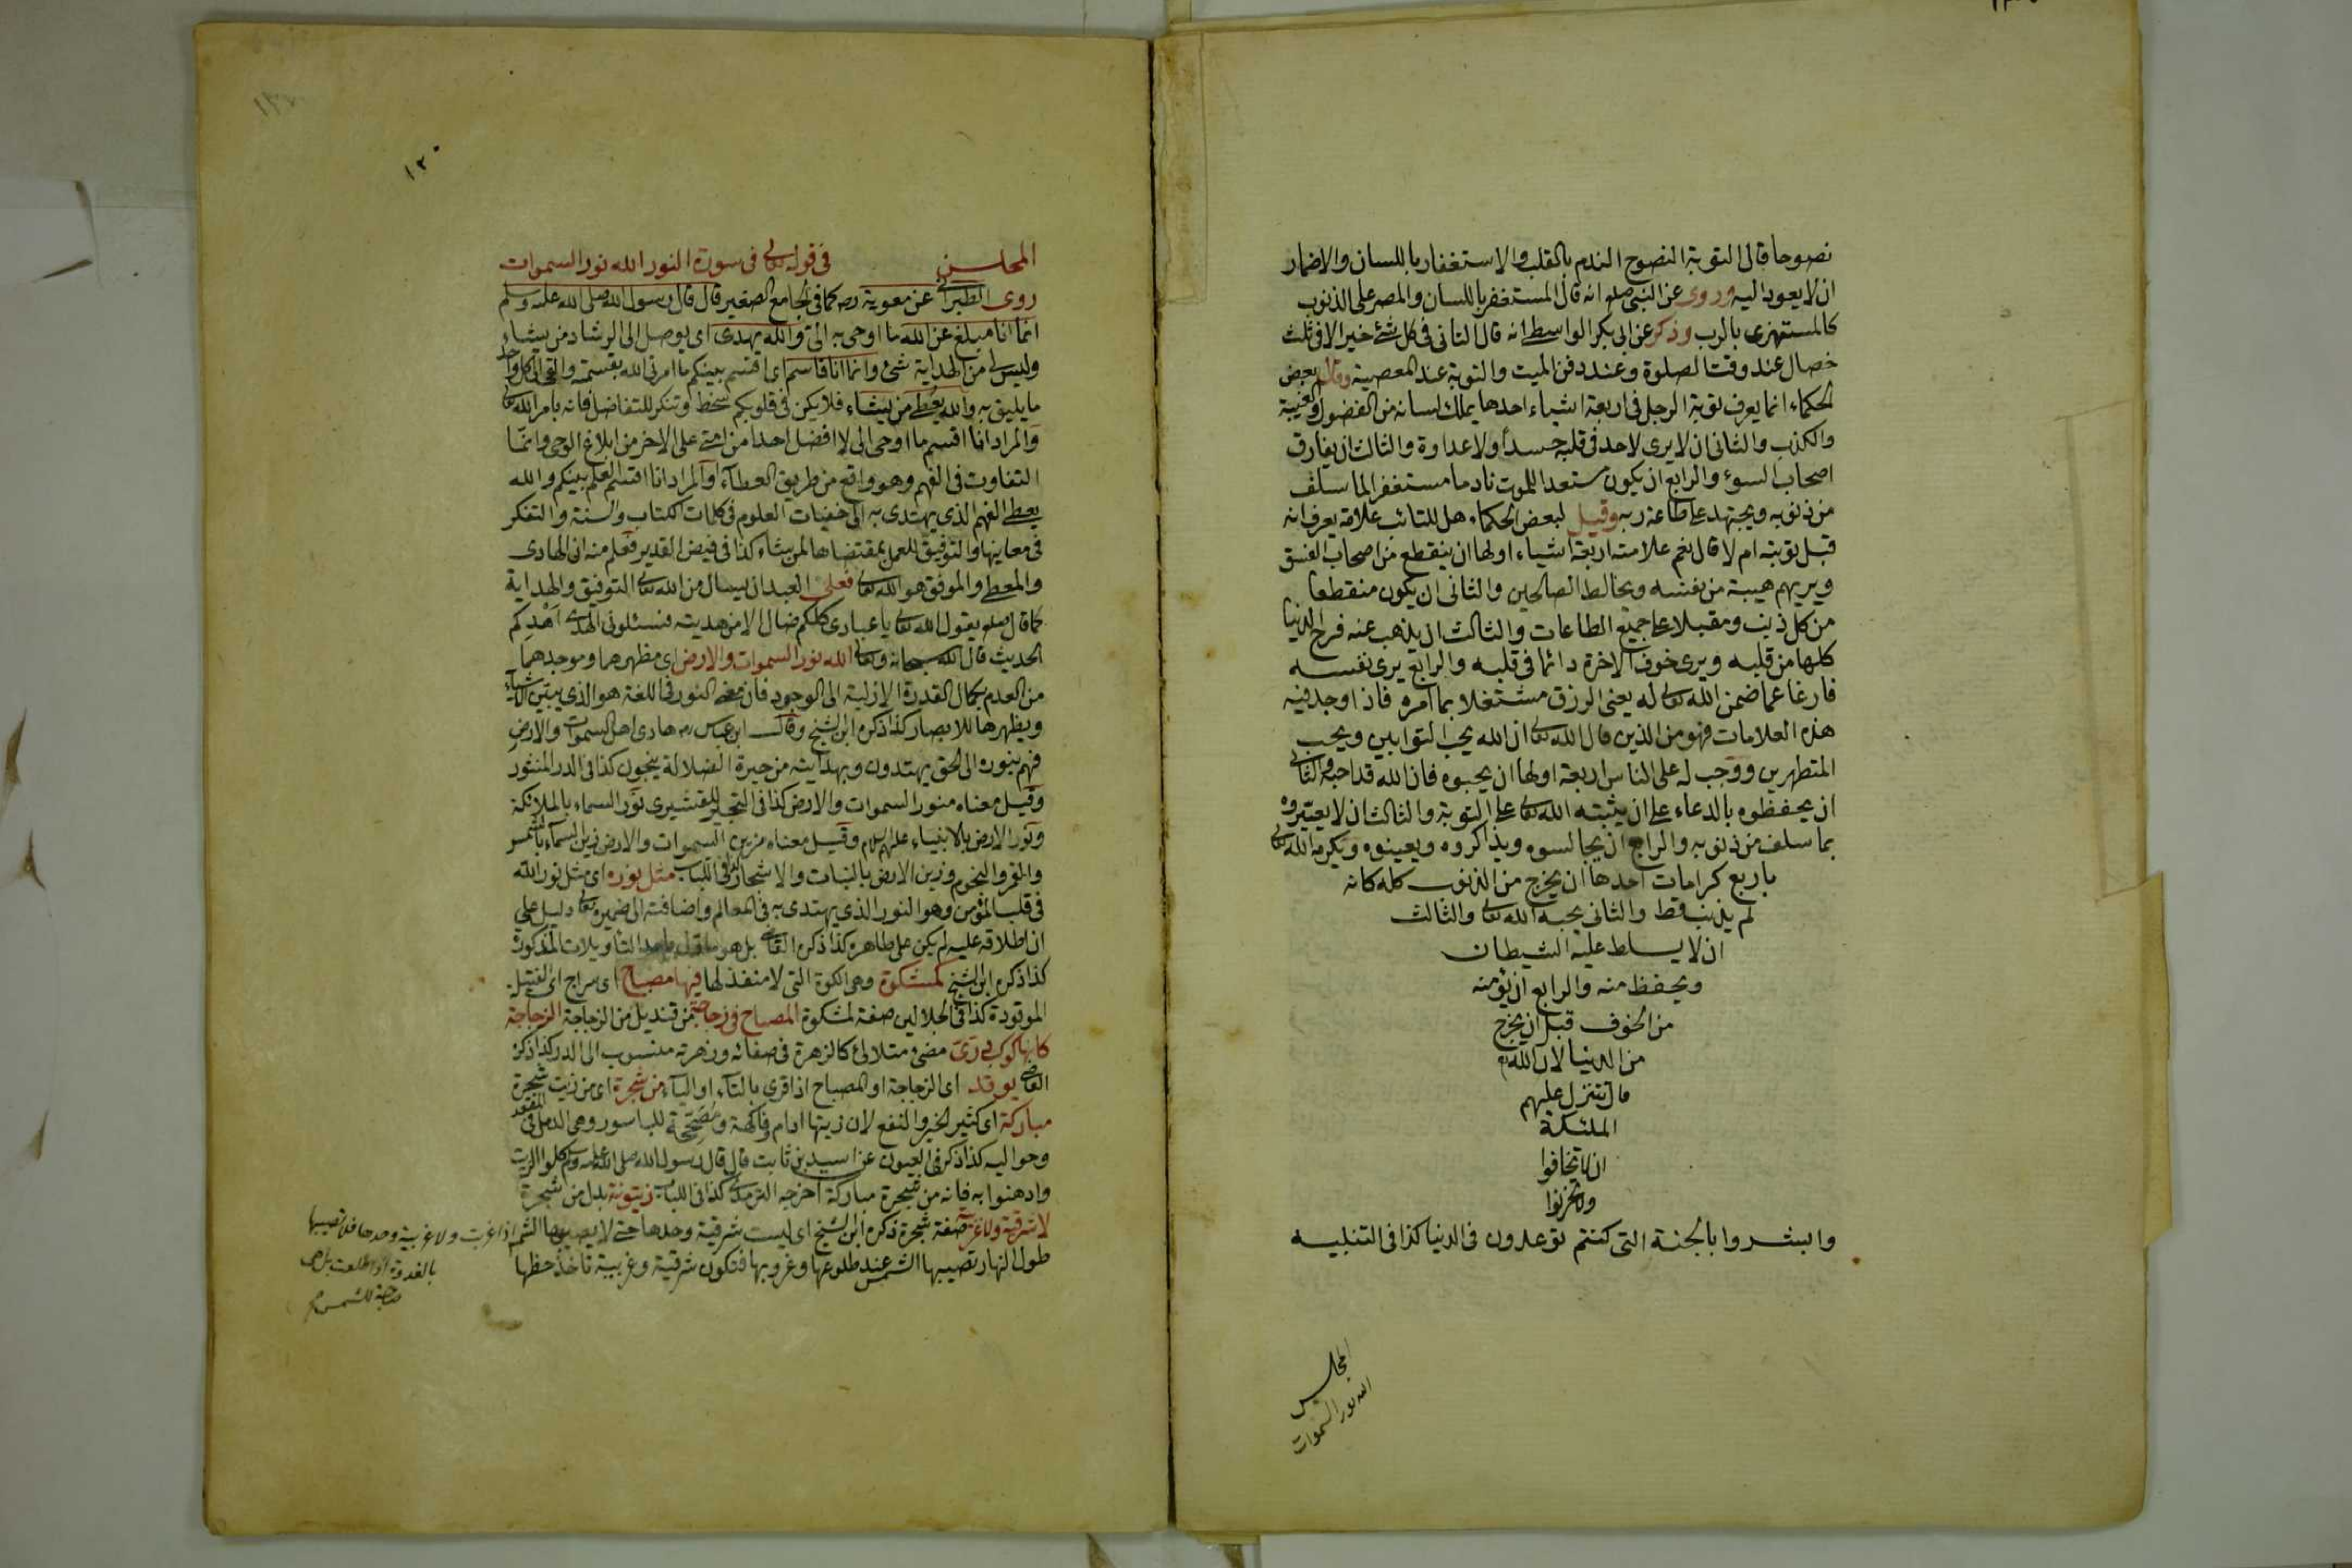 نصوحا قال التوبة النصوح الندم بالقلب والاستغفار باللسان والاضمار
ان لا يعود اليه وروى عن النبى صلعم انه قال المستغفر باللسان والمصر على الذنوب
كالمستهزى بالرب وذكر عن ابى بكر الواسطى انه قال التانى فى كل شئ خير الا فى ثلث
خصال عند وقت الصلوة وعند دفن الميت والتوبة عند المعصية وقال بعض
الحكماء انما يعرف توبة الرجل فى اربعة اشياء احدها يملك لسانه من الفضول والغيبة
والكذب والثانى ان لا يرى لاحد فى قلبه حسدا ولا عداوة والثالث ان يفارق
اصحاب السوء والرابع ان يكون مستعدا للموت نادما مستغفرا لما سلف
من ذنوبه ويجتهد على طاعة ربه وقيل لبعض الحكماء هل للتائب علامة يعرف انه
قبل توبته ام لا قال نعم علامته اربعة اشياء اولها ان ينقطع من اصحاب الفسق
ويريهم هيبة من نفسه ويخالط الصالحين والثانى ان يكون منقطعا
من كل ذنب ومقبلا على جميع الطاعات والثالث ان يذهب عنه فرح الدنيا
كلها من قلبه ويرى خوف الاخرة دائما فى قلبه والرابع يرى نفسه
فارغا عما ضمن الله تعالى له يعنى الرزق مشتغلا بما امره فاذا وجد فيه
هذه العلامات فهو من الذين قال الله تعالى ان الله يحب التوابين ويحب
المتطهرين ووجب له على الناس اربعة اولها ان يحبوه فان الله قد احبه والثانى
ان يحفظوه بالدعاء على ان يثبته الله تعالى على التوبة والثالث ان لا يعيّروه
بما سلف من ذنوبه والرابع ان يجالسوه ويذاكروه ويعينوه ويكرمه الله تعالى
باربع كرامات احدها ان يخرج من الذنوب كله كانه
لم يذنب قط والثانى يحبه الله تعالى والثالث
ان لا يسلط عليه الشيطان
ويحفظ منه والرابع ان يؤمنه
من الخوف قبل ان يخرج
من الدنيا لان الله تع
قال تتنزل عليهم
الملئكة
ان لا تخافوا
ولا تحزنوا
وابشروا بالجنة التى كنتم توعدون فى الدنيا كذا فى التنبيه
المجلس
الله نور السموات
١٢٠
المجلس فى قوله تعالى فى سورة النور الله نور السموات
روى الطبرانى عن معوية رضه كما فى الجامع الصغير قال قال رسول الله صلى الله عليه وسلم
انما انا مبلغ عن الله ما اوحى به الىّ والله يهدى اى يوصل الى الرشاد من يشاء
وليس لى من الهداية شئ وانما انا قاسم اى اقسم بينكم ما امرنى الله بقسمته والقى الى كل واحد
ما يليق به والله يعطى من يشاء فلا يكن فى قلوبكم سخط وتنكر للتفاضل فانه بامر الله تعالى
والمراد انا اقسم ما اوحى الى لا افضل احدا من امتى على الاخر من ابلاغ الوحى وانما
التفاوت فى الفهم وهو واقع من طريق العطاء او المراد انا اقسم العلم بينكم والله
يعطى الفهم الذى يهتدى به الى خفيات العلوم فى كلمات الكتاب والسنة والتفكر
فى معانيها والتوفيق للعمل بمقتضاها لمن يشاء كذا فى فيض القدير فعلم منه ان الهادى
والمعطى والموفق هو الله تعالى فعلى العبد ان يسال من الله تعالى التوفيق والهداية
كما قال صلعم يقول الله تعالى يا عبادى كلكم ضال الا من هديته فسئلونى الهدى اَهْدِكم
الحديث قال الله سبحانه وتعالى الله نور السموات والارض اى مظهرهما وموجدهما
من العدم بكمال القدرة الازلية الى الوجود فان معنى النور فى اللغة هو الذى يبيّن الاشياء
ويظهرها للابصار كذا ذكره ابن الشيخ وقال ابن عباس رض هادى اهل السموات والارض
فهم بنوره الى الحق يهتدون وبهدايته من حيرة الضلالة ينجون كذا فى الدر المنثور
وقيل معناه منور السموات والارض كذا فى التحبير للقشيرى نوّر السماء بالملائكة
ونوّر الارض بالانبياء عليهم السلام وقيل معناه مزين السموات والارض زين السماء بالشمس
والقمر والنجوم وزين الارض بالنبات والاشجار كذا فى اللباب مثل نوره اى مثل نور الله
فى قلب المؤمن وهو النور الذى يهتدى به فى المعالم واضافته الى ضميره تعالى دليل على
ان اطلاقه عليه لم يكن على ظاهره كذا ذكره القاضى بل هو التأويلات المذكورة
كذا ذكره ابن الشيخ كمشكوة وهى الكوة التى لا منفذ لها فيها مصباح اى سراج اى الفتيل
الموقودة كذا فى الجلالين صفة لمشكوة المصباح فى زجاجة من قنديل من الزجاجة الزجاجة
كانها كوكب درّى مضئ متلالئ كالزهرة فى صفائه وزهرته منسوب الى الدر كذا ذكره
القاضى يوقد اى الزجاجة او المصباح اذا قرى بالتاء او الياء من شجرة اى من زيت شجرة
مباركة اى كثير الخير والنفع لان زيتها ادام وفاكهة ومُصَحِّحَة للباسور وهى الدمل فى المقعد
وحواليه كذا ذكر فى العيون عن اسيد بن ثابت قال قال رسول الله صلى الله عليه وسلم كلوا الزيت
وادهنوا به فانه من شجرة مباركة اخرجه الترمذى كذا فى اللباب زيتونة بدل من شجرة
لا شرقية ولا غربية صفة شجرة ذكره ابن الشيخ اى ليست شرقية وحدها حتى لا يصيبها الشمس اذا غربت ولا غربية وحدها فلا تصيبها
بالغدوة اذا طلعت بل هى
ضاحية للشمس
طول النهار تصيبها الشمس عند طلوعها وغروبها فتكون شرقية وغربية تاخذ حظها